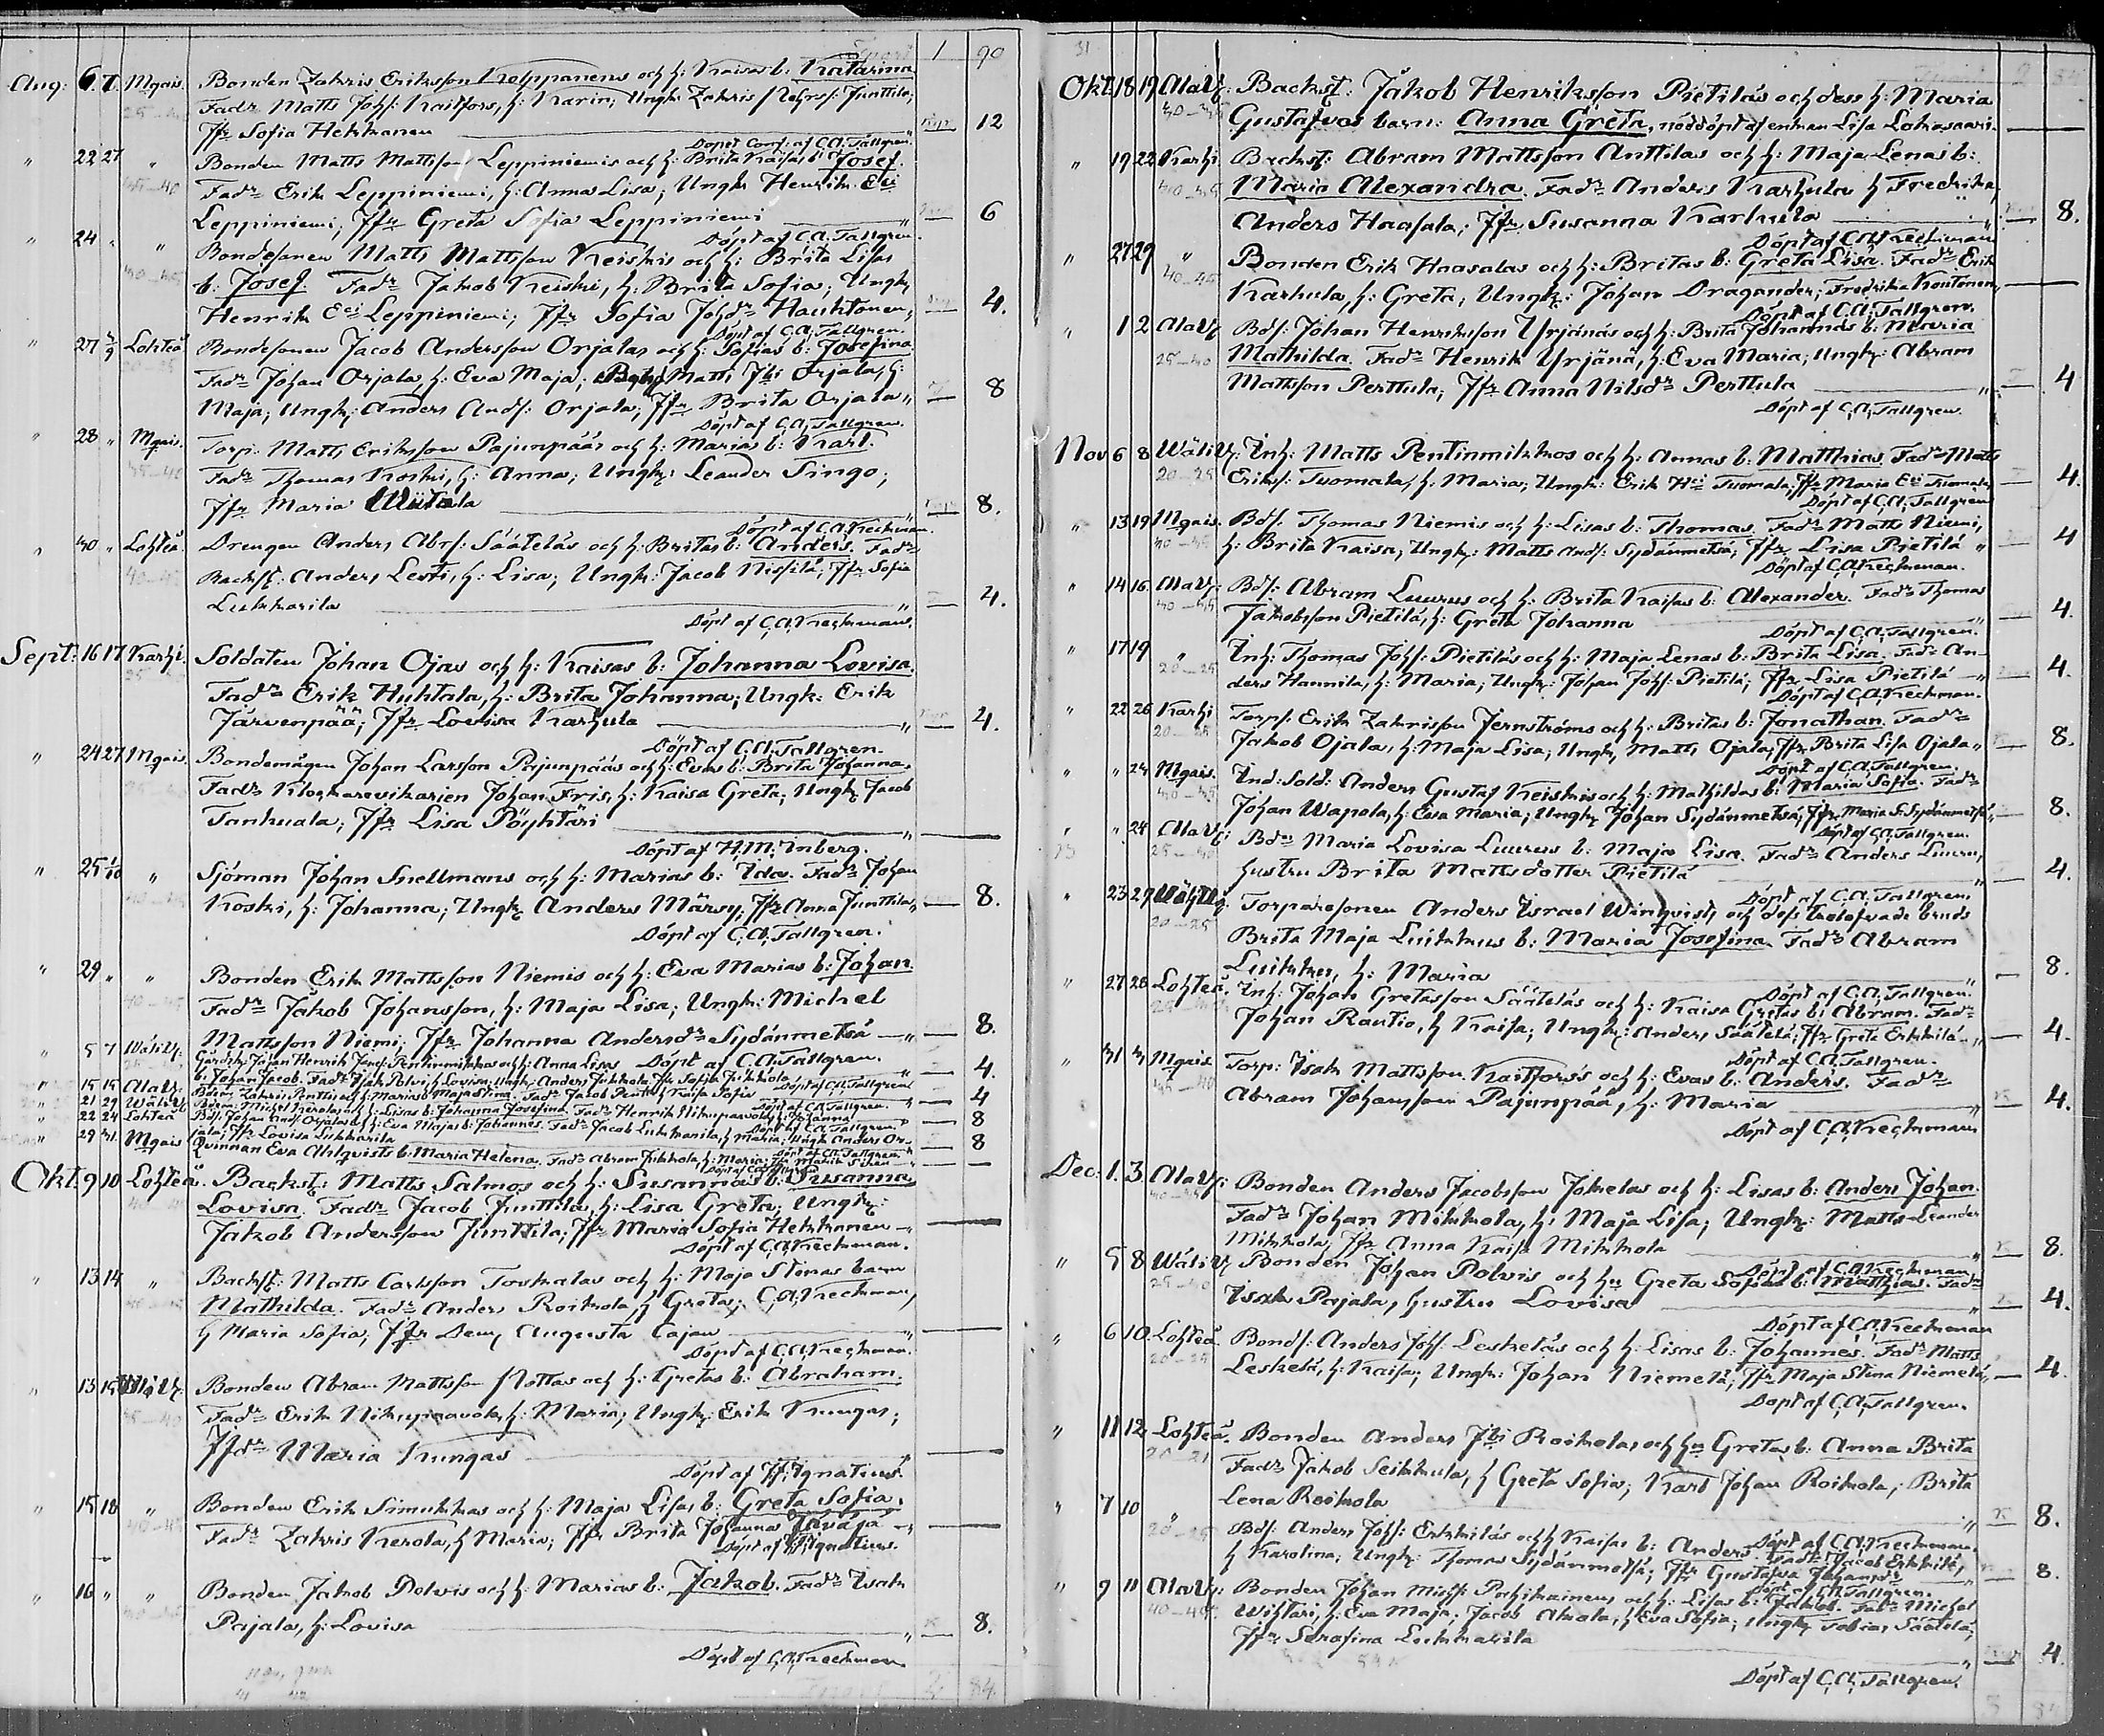 Transport 1 90
Aug: 6 7 Mgais. Bonden Zakris Eriksson och h: Kaisas b: Katarina
25-40 Fadr Matts Johs: Kaitfors, h: Karin; Ungk: Zakris Junttila;
Jfr Sofia Hekkanen 12
Döpt Conf: af C.A. Tallgren.
" 22 27 " Bonden Matts Mattsson Leppiniemis och h: Brita Kaisas b: Josef.
35-40 Fadr Erik Leppiniemi, h: Anna Lisa; Ungk: Henrik Eri
Leppiniemi; Jfr Greta Sofia Leppiniemi " 6
Döpt af C.A. Tallgren.
" 24 " " Bondesonen Matts Mattsson Keiskis och h: Brita Lisas
40-45 b: Josef. Fadr Jakob Keiski, h: Brita Sofia; Ungk
Henrik Eri Leppiniemi; Jfr Sofia Johdr Hauktonen, 4.
Döpt af C.A. Tallgren.
" 27 2/9 Lohteå Bondesonen Jacob Andersson Orjalas och h: Sofias b: Josefina
20-25 Fadr Johan Orjala, h: Eva Maja; Matts Jbi Orjala, h:
Maja; Ungk: Anders Ands: Orjala; Jfr Brita Orjala " 8
Döpt af C.A. Tallgren.
" 28 " Mgais. Torp: Matts Eriksson Pajunpääs och h: Marias b: Karl.
35-40 Fadr Thomas Koski, h: Anna; Ungk: Leander Singo;
Jfr Maria Wiitala 8.
Döpt af C.A. Keckman.
" 30 " Lohteå. Drengen Anders Abrs: Säätelås och h: Britas b: Anders. Fadr
Backst: Anders Lesti, h: Lisa; Ungk: Jacob Nissilä; Jfr Sofia
Lukkarila " 4.
Döpt af C.A. Keckman.
Sept: 16 17 Karhi. Soldaten Johan Ojas och h: Kaisas b: Johanna Lovisa.
Fadr Erik Huhtala, h: Brita Johanna; Ungk: Erik
Järvenpää; Jfr Lovisa Karhula " 4.
Döpt af C.A. Tallgren.
" 24 27 Mgais. Bondemågen Johan Larsson Pajunpääs och h: Evas b: Brita Johanna.
Fadr Klockarevikarien Johan Fris, h: Kaisa Greta; Ungk Jacob
Tanhuala; Jfr Lisa Pöyhtäri "
Döpt af H.M. Inberg.
" 25 1/10 " Sjöman Johan Snellmans och h: Marias b: Ida. Fadr Johan
Koski, h: Johanna; Ungk Anders Märsy; Jfr Anna Junttila " 8.
Döpt af C.A. Tallgren.
" 29 " " Bonden Erik Mattsson Niemis och h: Eva Marias b: Johan.
40-45 Fadr Jakob Johansson, h: Maja Lisa; Ungk: Michel
Mattsson Niemi; Jfr Johanna Andersdr Sydänmetsä " 8.
" 5 7 Wäli Gårdsk: Johan Henrik Pentinmikkos och h: Anna Lisas Döpt af C.A. Tallgren.
b: Johan Jacob. Fadr Isak Polvi, h Lovisa; Ungk: Anders Jukkola, Jfr Sofia Jukkola 4.
" 15 15 Alav. Bdn Zakris Penttis och h: Marias b: Maja Stina. Fadr Jakob Pentti, h Kaisa Sofia Döpt af C.A. Tallgren 4
" 21 29 Wäli Bdsn: Michel Kerolas och h: Lisas b: Johanna Josefina. Fadr Henrik Nikupaavola, h: Anna " 8
" 22 24 Lohteå Bds: Johan Ands: Orjalas och h: Eva Majas b: Johannes. Fadr Jacob Lukkarila, h Maria; Ungk Anders Or-
jala; Jfr Lovisa Lukkarila 8
" 29 31 Mgais Qvinnan Eva Ahlqvists b: Maria Helena. Fadr Abram Jukkola, h: Maria; Jfr Maria
Okt. 9 10 Lohteå. Backst: Matts Salmos och h: Susannas b: Susanna
Lovisa. Fadr Jacob Junttila, h: Lisa Greta; Ungk:
Jakob Andersson Junttila; Jfr Maria Sofia Hekkanen "
Döpt af C.A. Keckman.
" 13 14 " Backst: Matts Carlsson Toskalas och h: Maja Stinas barn
Mathilda. Fadr Anders Roikola, h Greta; C.A. Keckman,
h Maria Sofia; Jfr Dem. Augusta Cajan "
Döpt af C.A. Keckman.
" 13 15 Bonden Abram Mattsson Nottas och h: Gretas b: Abraham.
35-40 Fadr Erik Nikupaavola, h: Maria; Ungk: Erik Kungas;
Jfdr Maria Kungas "
Döpt af Jf: Ignatius.
" 15 18 " Bonden Erik Simukkas och h: Maja Lisas b: Greta Sofia.
40-45 Fadr Zakris Kerola, h Maria; Jfr Brita Johanna "
Döpt af Jf: Ignatius.
" 16 " " Bonden Jakob Polvis och h: Marias b: Jakob. Fadr Isak
Pajala, h: Lovisa " 8.
Döpt af C.A. Keckman.
2 84.
31
Okt. 18 19 Alav. Backst: Jakob Henriksson Pietiläs och dess h: Maria
Gustafvas barn: Anna Greta, nöddöpt af enkan Lisa Lokasaari.
" 19 22 Karhi. Backst: Abram Mattsson Anttilas och h: Maja Lenas b:
40-45 Maria Alexandra. Fadr Anders Karhula h Fredrika,
Anders Haasala; Jfr Susanna Karhula 8.
Döpt af C.A. Keckman
" 27 29 " Bonden Erik Haasalas och h: Britas b: Greta Lisa. Fadr Erik
40-45 Karhula, h: Greta; Ungk: Johan Dragander; Fredrika Kontonen,
Döpt af C.A. Tallgren.
" 1 2 Alav Bds: Johan Henriksson Yrjänäs och h: Brita Johannas b: Maria
25-40 Mathilda. Fadr Henrik Yrjänä, h: Eva Maria; Ungk: Abram
Mattsson Perttula; Jfr Anna Nilsdr Perttula " 4
Döpt af C.A. Tallgren.
Nov 6 8 Wäli. Inh: Matts Pentinmikkos och h: Annas b: Matthias. Fadr Matts
20-25 Eriks: Tuomala, h: Maria; Ungk: Erik Hri Tuomala; Jfr Maria Eri Tuomala 4.
Döpt af C.A. Tallgren
" 13 19 Mgais. Bds. Thomas Niemis och h: Lisas b: Thomas. Fadr Matts Niemi,
h: Brita Kaisa; Ungk: Matts Ands: Sydänmetsä; Jfr Lisa Pietilä " 4
Döpt af C.A. Keckman.
" 14 16 Alav. Bds: Abram Luurus och h: Brita Kaisas b: Alexander. Fadr Thomas
Jakobsson Pietilä, h: Greta Johanna " 4.
Döpt af C.A. Tallgren.
" 17 19 " Inh: Thomas Johs: Pietiläs och h: Maja Lenas b: Brita Lisa. Fadr An-
20-25 ders Hannila, h: Maria; Ungk: Johan Johs: Pietilä; Jfr Lisa Pietilä " 4.
Döpt af C.A. Keckman.
" 22 26 Karhi Torps: Erik Zakrisson Jernströms och h: Britas b: Jonathan. Fadr
20-25 Jakob Ojala, h: Maja Lisa; Ungk: Matts Ojala; Jfr Brita Lisa Ojala " 8.
Döpt af C.A. Tallgren.
" " 24 Mgais. Ind: Sold: Anders Gustaf Keiskis och h: Mathildas b: Maria Sofia. Fadr
40-45 Johan Wapola, h: Eva Maria; Ungk Johan Sydänmetsä; Jfr Maria S. Sydänmetsä " 8.
Döpt af C.A. Tallgren.
" " 24 Alav. Bdr Maria Lovisa Luurus b: Maja Lisa. Fadr Anders Luuru,
hustru Brita Mattsdotter Pietilä " 4.
Döpt af C.A. Tallgren.
" 23 27 Torparesonen Anders Israel Winqvists och dess trolofvade bruds
20-25 Brita Maja Luikkus b: Maria Josefina. Fadr Abram
Luikku, h: Maria " 8.
Döpt af C.A. Tallgren.
" 27 28 Lohteå. Inh: Johan Gretasson Säätelås och h: Kaisa Gretas b: Abram. Fadr
Johan Rautio, h Kaisa; Ungk: Anders Säätelä; Jfr Greta Erkkilä " 4.
Döpt af C.A. Tallgren.
" 31 3 Mgais. Torp: Isak Mattsson Kaitfors's och h: Evas b: Anders. Fadr
Abram Johansson Pajunpää, h: Maria " 4.
Döpt af C.A. Keckman
Dec: 1. 3. Alav. Bonden Anders Jacobsson Jokelas och h: Lisas b: Anders Johan.
Fadr Johan Mikkola, h: Maja Lisa; Ungk: Matts Leander
Mikkola; Jfr Anna Kaisa Mikkola " 8.
Döpt af C.A. Keckman
" 5 8 Wäli Bonden Johan Polvis och hu Greta Sofias b: Matthias. Fadr
25-40 Isak Pajala, hustru Lovisa " 4.
Döpt af C.A. Keckman
" 6 10 Lohteå Bonds: Anders Johs: Leskeläs och h: Lisas b: Johannes. Fadr Matts
20-25 Leskelä, h: Kaisa; Ungk: Johan Niemelä; Jfr Maja Stina Niemelä, 4.
Döpt af C.A. Tallgren.
" 11 12 Lohteå. Bonden Anders Jbi Roikolas och hu Gretas b: Anna Brita
Fadr Jakob Seikkula, h Greta Sofia; Karl Johan Roikola; Brita
Lena Roikola " 8.
Döpt af C.A. Keckman.
" 7 10 " Bds: Anders Johs: Erkkiläs och h Kaisas b: Anders. Fadr Jacob Erkkilä,
20-25 h Karolina; Ungk: Thomas Sydänmetsä; Jfr Gustafva Johansdr " 8.
Döpt af C.A. Tallgren.
" 9 11 Alav. Bonden Johan Michs: Pahikainens och h: Lisas b: Jakob. Fadr Michel
40-45 Wihtari, h: Eva Maja; Jacob Alkola, h Eva Sofia; Ungk Tobias Säätelä;
Jfr Serafina Lukkarila " 4.
Döpt af C.A. Tallgren.